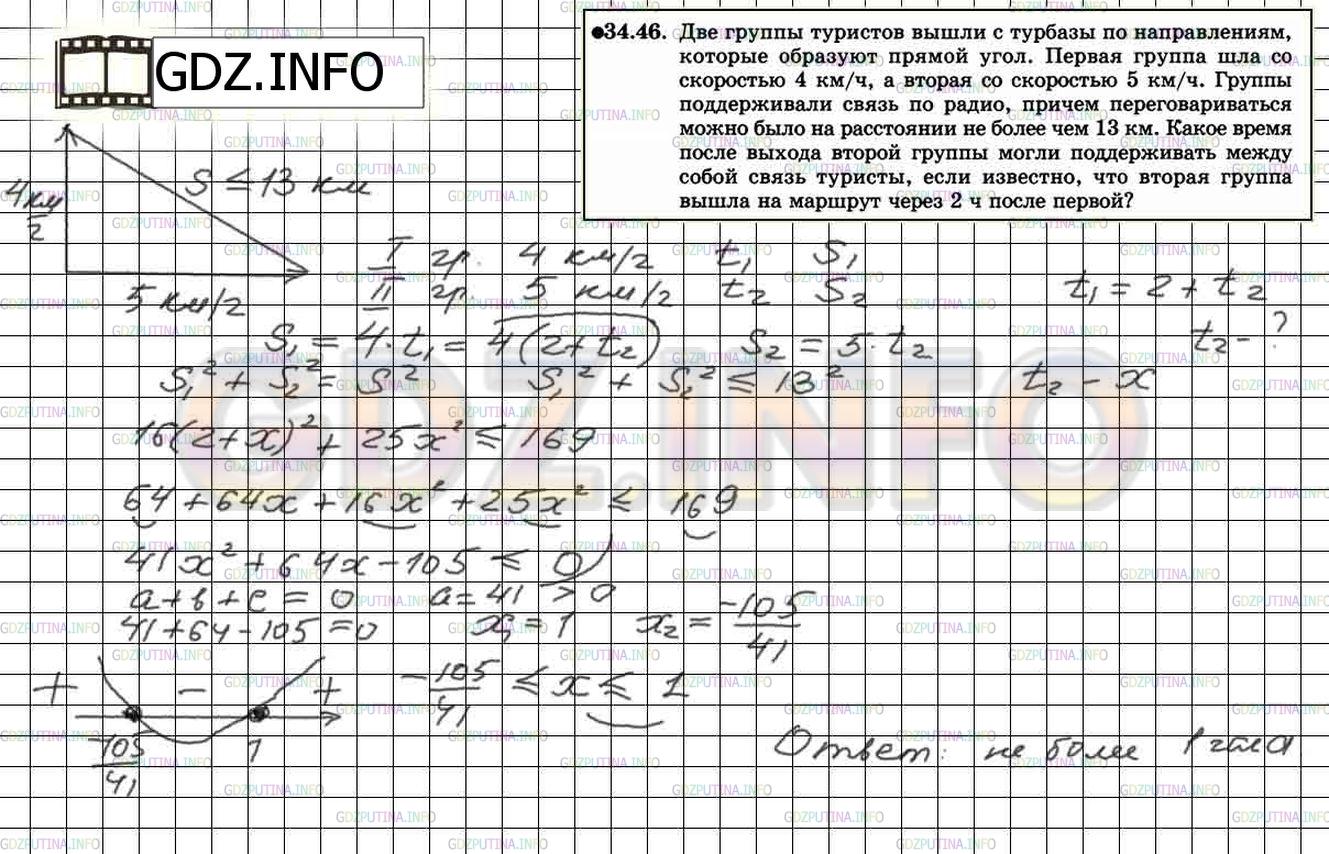 GDZ.INFO
●34.46. Две группы туристов вышли с турбазы по направлениям,
которые образуют прямой угол. Первая группа шла со
скоростью 4 км/ч, а вторая со скоростью 5 км/ч. Группы
поддерживали связь по радио, причем переговариваться
можно было на расстоянии не более чем 13 км. Какое время
после выхода второй группы могли поддерживать между
собой связь туристы, если известно, что вторая группа
вышла на маршрут через 2 ч после первой?
S ≤ 13 км
4 км/ч
5 км/ч
I гр. 4 км/ч t₁ S₁
II гр. 5 км/ч t₂ S₂
t₁ = 2 + t₂
t₂ - ?
S₁ = 4·t₁ = 4(2+t₂) S₂ = 5·t₂
S₁² + S₂² = S² S₁² + S₂² ≤ 13² t₂ - x
16(2+x)² + 25x² ≤ 169
64 + 64x + 16x² + 25x² ≤ 169
41x² + 64x - 105 ≤ 0
a + b + c = 0 a = 41 > 0
41 + 64 - 105 = 0 x₁ = 1 x₂ = -105/41
+ - + -105/41 ≤ x ≤ 1
-105/41 1
Ответ: не более 1 часа
GDZ.INFO
GDZPUTINA.INFO